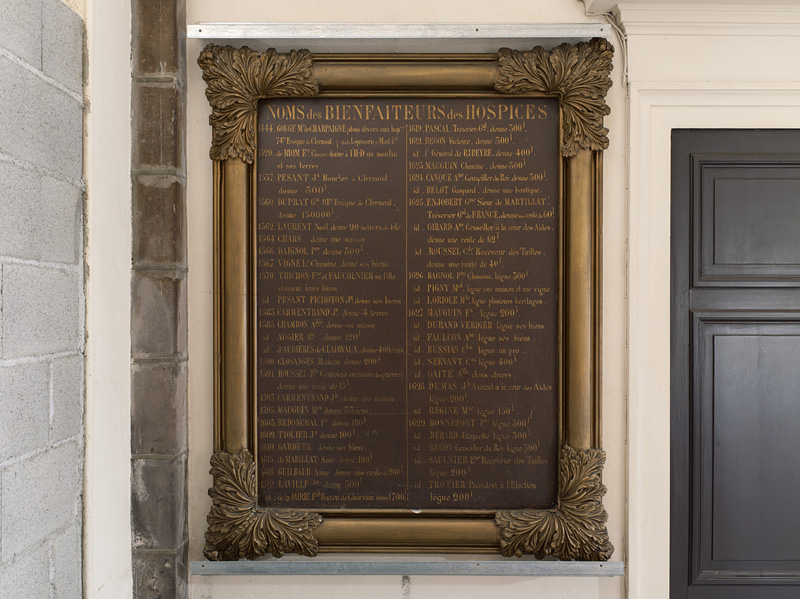 NOMS des BIENFAITEURS des HOSPICES
1444. GOUGE M. de CHARPAIGNE; dons divers aux hop.
74e Evêque de Clermont
1529. de RIOM donne à l'H-D un moulin
et ses terres
1557. PESANT Jn Boucher à Clermont,
donne 500l
1560. DUPRAT Gme 81e Evêque de Clermont,
donne 150000l
1562. LAURENT Noël, donne 20 setiers de blé
1564. CHARS. donne une maison
1566. BAIGNOL donne 500l
1567. VIGNE donne ses biens
1570. TRICHON et FAUCOLNIER sa fille,
donnent leurs biens
id. PESANT PICHOTON Jn donne ses biens
1583. CARMENTRAND donne 4 terres
1585. CHAMBON donne sa maison
id. AUGIER donne 120l
id. d'AUBIÈRES de CLAIRVAUX, donne 400 écus
1590. CLOSANGES Médecin donne 200l
1591. ROUSSEL Contrôleur ordinaire des guerres
donne une rente de 15l
1593. CARMENTRAND donne une maison
1595. MAUGUIN donne 33 écus
1603. REDONCHAL donne 180l
1609. TIOLIER donne 100l
1610. GARDETE donne ses biens
de MARILLAT Anne lègue 100l
GUILBAUD Anne, donne une rente de 200l
LAVILLE
de la JAMBIE Bayen de Clairvaux donne 1700l
1619. PASCAL, Trésorier Gal, donne 300l
1621. BEGON Victoire, donne 300l
id. l'Général de RIBEYRE, donne 400l
1623. MAUGUIN Claude, donne 300l
1624. CANQUE Conseiller du Roi, donne 300l
id. BELOT Gaspard, donne une boutique
1625. ENJOBERT Gme Sieur de MARTILLAT
Trésorier Gal de FRANCE, donne une rente de 60l
id. GIRARD Conseiller à la cour des Aides,
donne une rente de 62l
id. ROUSSEL Receveur des Tailles,
donne une rente de 40l
1626. BAGNOL Chanoine, lègue 300l
id. PIGNY lègue une maison et une vigne
id. LORIOLE lègue plusieurs héritages
1627. MAUGUIN lègue 200l
id. DURAND VERDIER lègue ses biens
id. FAULCON lègue ses biens
id. RUSSIAS lègue un pré
id. SERVANT lègue 400l
id. GAITE dons divers
1628. DUMAS Avocat à la cour des Aides
lègue 200l
id. REGINE lègue 150l
1629. BONNEFONT lègue 500l
id. BÉRARD Jacquette lègue 300l
id. BEGON Conseiller du Roi lègue 300l
id. SAULNIER Receveur des Tailles
lègue 200l
id. TROTIER Président à l'Election
lègue 200l